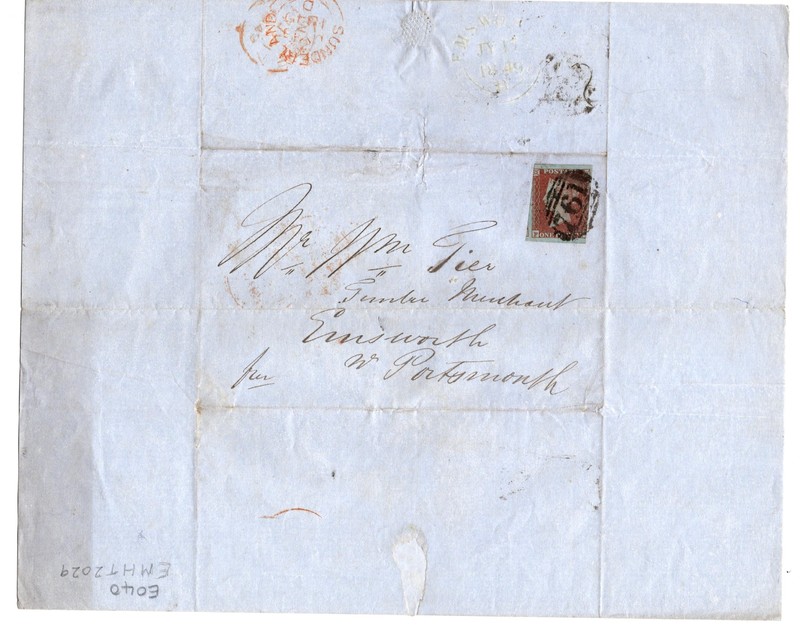 SUNDERLAND
EMSWORTH
1 POSTAGE
761
ONE
Mr Wm Tier
Timber Merchant
Emsworth
per Nr Portsmouth
E040
EMHT2029